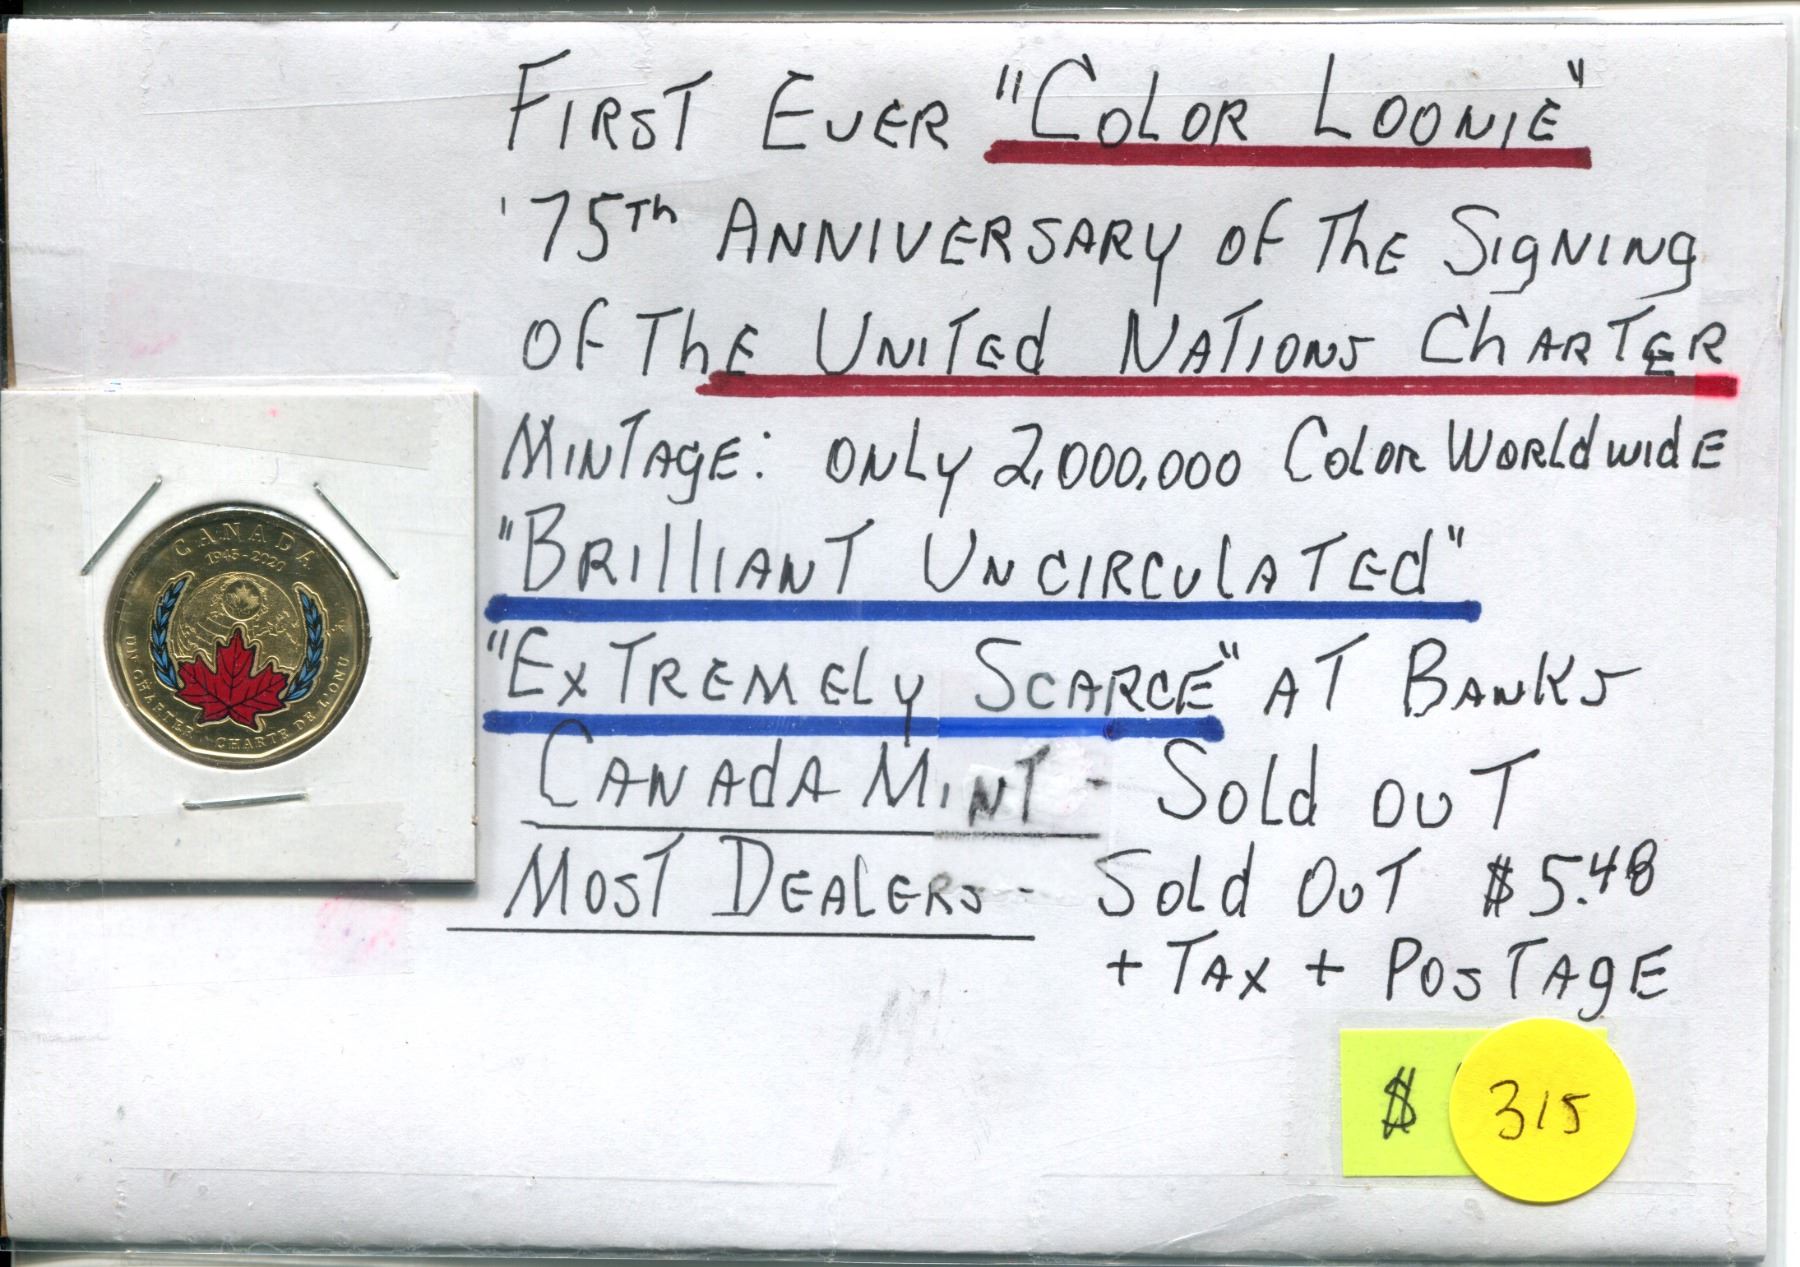 FIRST EVER "COLOR LOONIE"
'75Th ANNIVERSARY OF ThE SIgNINg
OF ThE UNITEd NATIONS ChARTER
MINTAgE: ONLY 2,000,000 COLOR WORLdwIdE
"BRIllIANT UNCIRCUlATEd"
"ExTREMELY SCARCE" AT BANKS
CANAdA MINT - SOld OUT
MOST DEALERS - SOld OUT $5.48
+ TAX + POSTAgE
$ 315
CANADA
1945-2020
UN CHARTER · CHARTE DE L'ONU